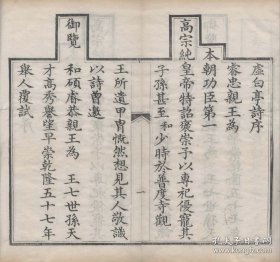 虛白亭詩序
睿忠親王為
本朝功臣第一
高宗純皇帝特詔褒崇予以專祀優寵其
子孫甚至和少時於普度寺觀
王所遺甲冑慨然想見其人敬識
以詩曾邀
御覽
和碩睿恭親王為王七世孫天
才高秀譽望早崇乾隆五十七年
舉人覆試
一
孔夫子旧书网